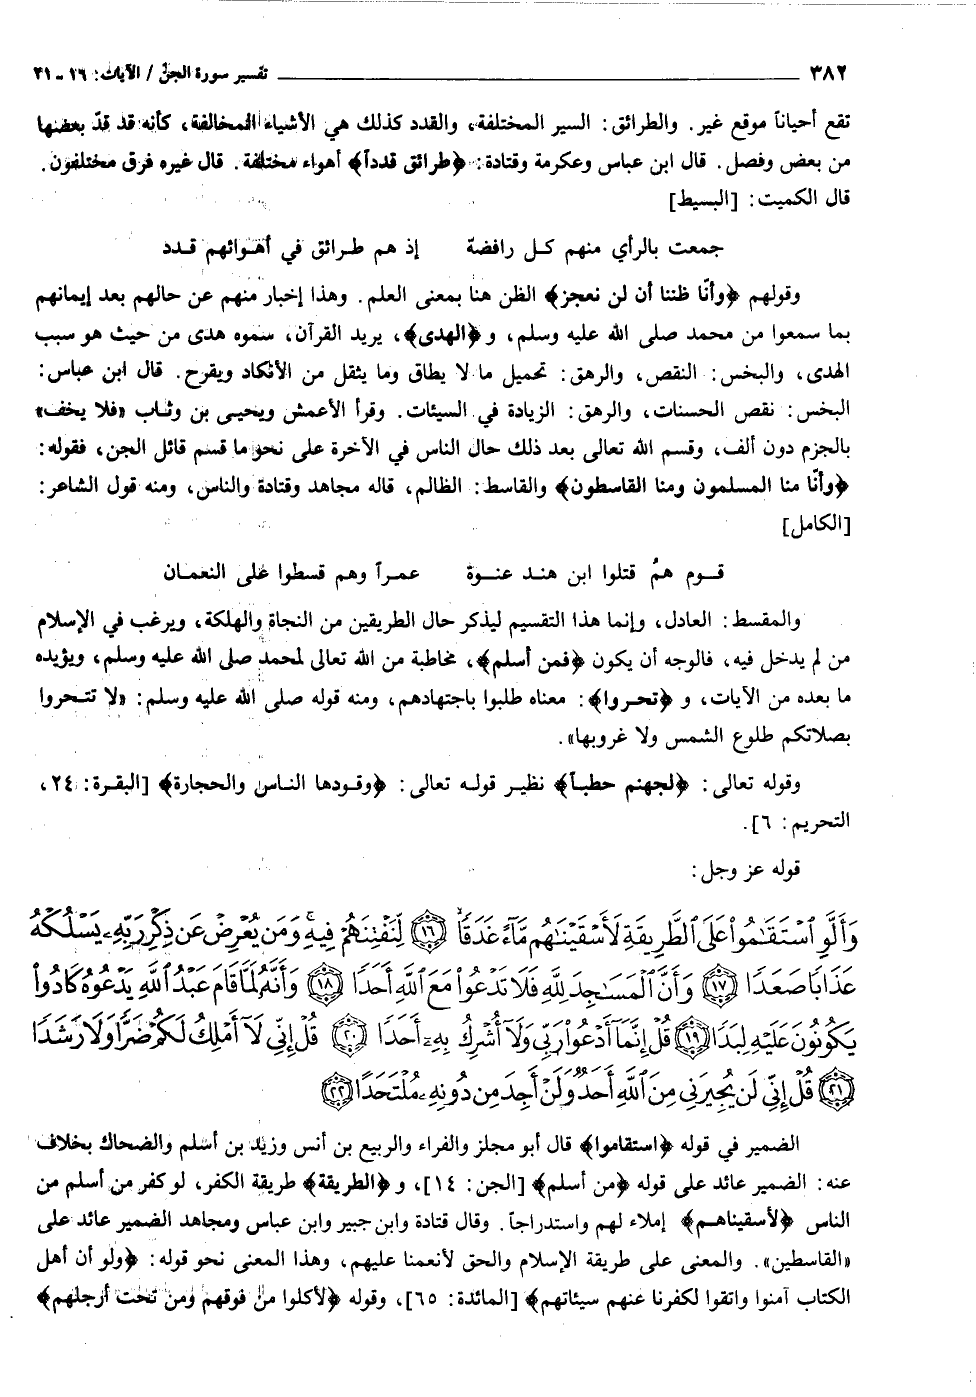 ٣٨٢ تفسير سورة الجن / الآيات: ١٦ - ٢١
تقع أحياناً موقع غير. والطرائق: السير المختلفة، والقدد كذلك هي الأشياء المخالفة، كأنه قد قدّ بعضها
من بعض وفصل. قال ابن عباس وعكرمة وقتادة: ﴿طرائق قدداً﴾ أهواء مختلفة. قال غيره فرق مختلفون.
قال الكميت: [البسيط]
جمعت بالرأي منهم كل رافضة إذ هم طرائق في أهوائهم قدد
وقولهم ﴿وأنّا ظننا أن لن نعجز﴾ الظن هنا بمعنى العلم. وهذا إخبار منهم عن حالهم بعد إيمانهم
بما سمعوا من محمد صلى الله عليه وسلم، و﴿الهدى﴾، يريد القرآن، سموه هدى من حيث هو سبب
الهدى، والبخس: النقص، والرهق: تحميل ما لا يطاق وما يثقل من الأنكاد ويقرح. قال ابن عباس:
البخس: نقص الحسنات، والرهق: الزيادة في السيئات. وقرأ الأعمش ويحيى بن وثاب «فلا يخف»
بالجزم دون ألف، وقسم الله تعالى بعد ذلك حال الناس في الآخرة على نحو ما قسم قائل الجن، فقوله:
﴿وأنّا منا المسلمون ومنا القاسطون﴾ والقاسط: الظالم، قاله مجاهد وقتادة والناس، ومنه قول الشاعر:
[الكامل]
قوم همُ قتلوا ابن هند عنوة عمراً وهم قسطوا على النعمان
والمقسط: العادل، وإنما هذا التقسيم ليذكر حال الطريقين من النجاة والهلكة، ويرغب في الإسلام
من لم يدخل فيه، فالوجه أن يكون ﴿فمن أسلم﴾، مخاطبة من الله تعالى لمحمد صلى الله عليه وسلم، ويؤيده
ما بعده من الآيات، و﴿تحروا﴾: معناه طلبوا باجتهادهم، ومنه قوله صلى الله عليه وسلم: «لا تتحروا
بصلاتكم طلوع الشمس ولا غروبها».
وقوله تعالى: ﴿لجهنم حطباً﴾ نظير قوله تعالى: ﴿وقودها الناس والحجارة﴾ [البقرة: ٢٤،
التحريم: ٦].
قوله عز وجل:
وَأَلَّوِ ٱسْتَقَٰمُوا۟ عَلَى ٱلطَّرِيقَةِ لَأَسْقَيْنَٰهُم مَّآءً غَدَقًا ١٦ لِّنَفْتِنَهُمْ فِيهِ ۚ وَمَن يُعْرِضْ عَن ذِكْرِ رَبِّهِۦ يَسْلُكْهُ
عَذَابًا صَعَدًا ١٧ وَأَنَّ ٱلْمَسَٰجِدَ لِلَّهِ فَلَا تَدْعُوا۟ مَعَ ٱللَّهِ أَحَدًا ١٨ وَأَنَّهُۥ لَمَّا قَامَ عَبْدُ ٱللَّهِ يَدْعُوهُ كَادُوا۟
يَكُونُونَ عَلَيْهِ لِبَدًا ١٩ قُلْ إِنَّمَآ أَدْعُوا۟ رَبِّى وَلَآ أُشْرِكُ بِهِۦٓ أَحَدًا ٢٠ قُلْ إِنِّى لَآ أَمْلِكُ لَكُمْ ضَرًّا وَلَا رَشَدًا
٢١ قُلْ إِنِّى لَن يُجِيرَنِى مِنَ ٱللَّهِ أَحَدٌ وَلَنْ أَجِدَ مِن دُونِهِۦ مُلْتَحَدًا ٢٢
الضمير في قوله ﴿استقاموا﴾ قال أبو مجلز والفراء والربيع بن أنس وزيد بن أسلم والضحاك بخلاف
عنه: الضمير عائد على قوله ﴿من أسلم﴾ [الجن: ١٤]، و﴿الطريقة﴾ طريقة الكفر، لو كفر من أسلم من
الناس ﴿لأسقيناهم﴾ إملاء لهم واستدراجاً. وقال قتادة وابن جبير وابن عباس ومجاهد الضمير عائد على
«القاسطين». والمعنى على طريقة الإسلام والحق لأنعمنا عليهم، وهذا المعنى نحو قوله: ﴿ولو أن أهل
الكتاب آمنوا واتقوا لكفرنا عنهم سيئاتهم﴾ [المائدة: ٦٥]، وقوله ﴿لأكلوا من فوقهم ومن تحت أرجلهم﴾